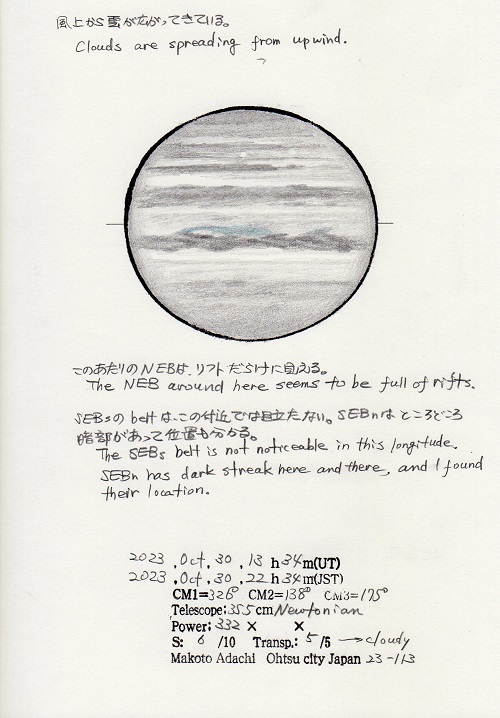 風上から雲が広がってきている。
Clouds are spreading from upwind.
このあたりのNEBは、リフトだらけに見える。
The NEB around here seems to be full of rifts.
SEBsのbeltは、この付近では目立たない。SEBnはところどころ
暗部があって位置も分かる。
The SEBs belt is not noticeable in this longitude.
SEBn has dark streak here and there, and I found
their location.
2023 ,Oct, 30, 13 h34m(UT)
2023 ,Oct, 30, 22h34m(JST)
CM1=326° CM2=138° CM3=175°
Telescope:35.5cm Newtonian
Power:332 × ×
S: 6 /10 Transp.: 5 /5 → cloudy
Makoto Adachi Ohtsu city Japan 23-113